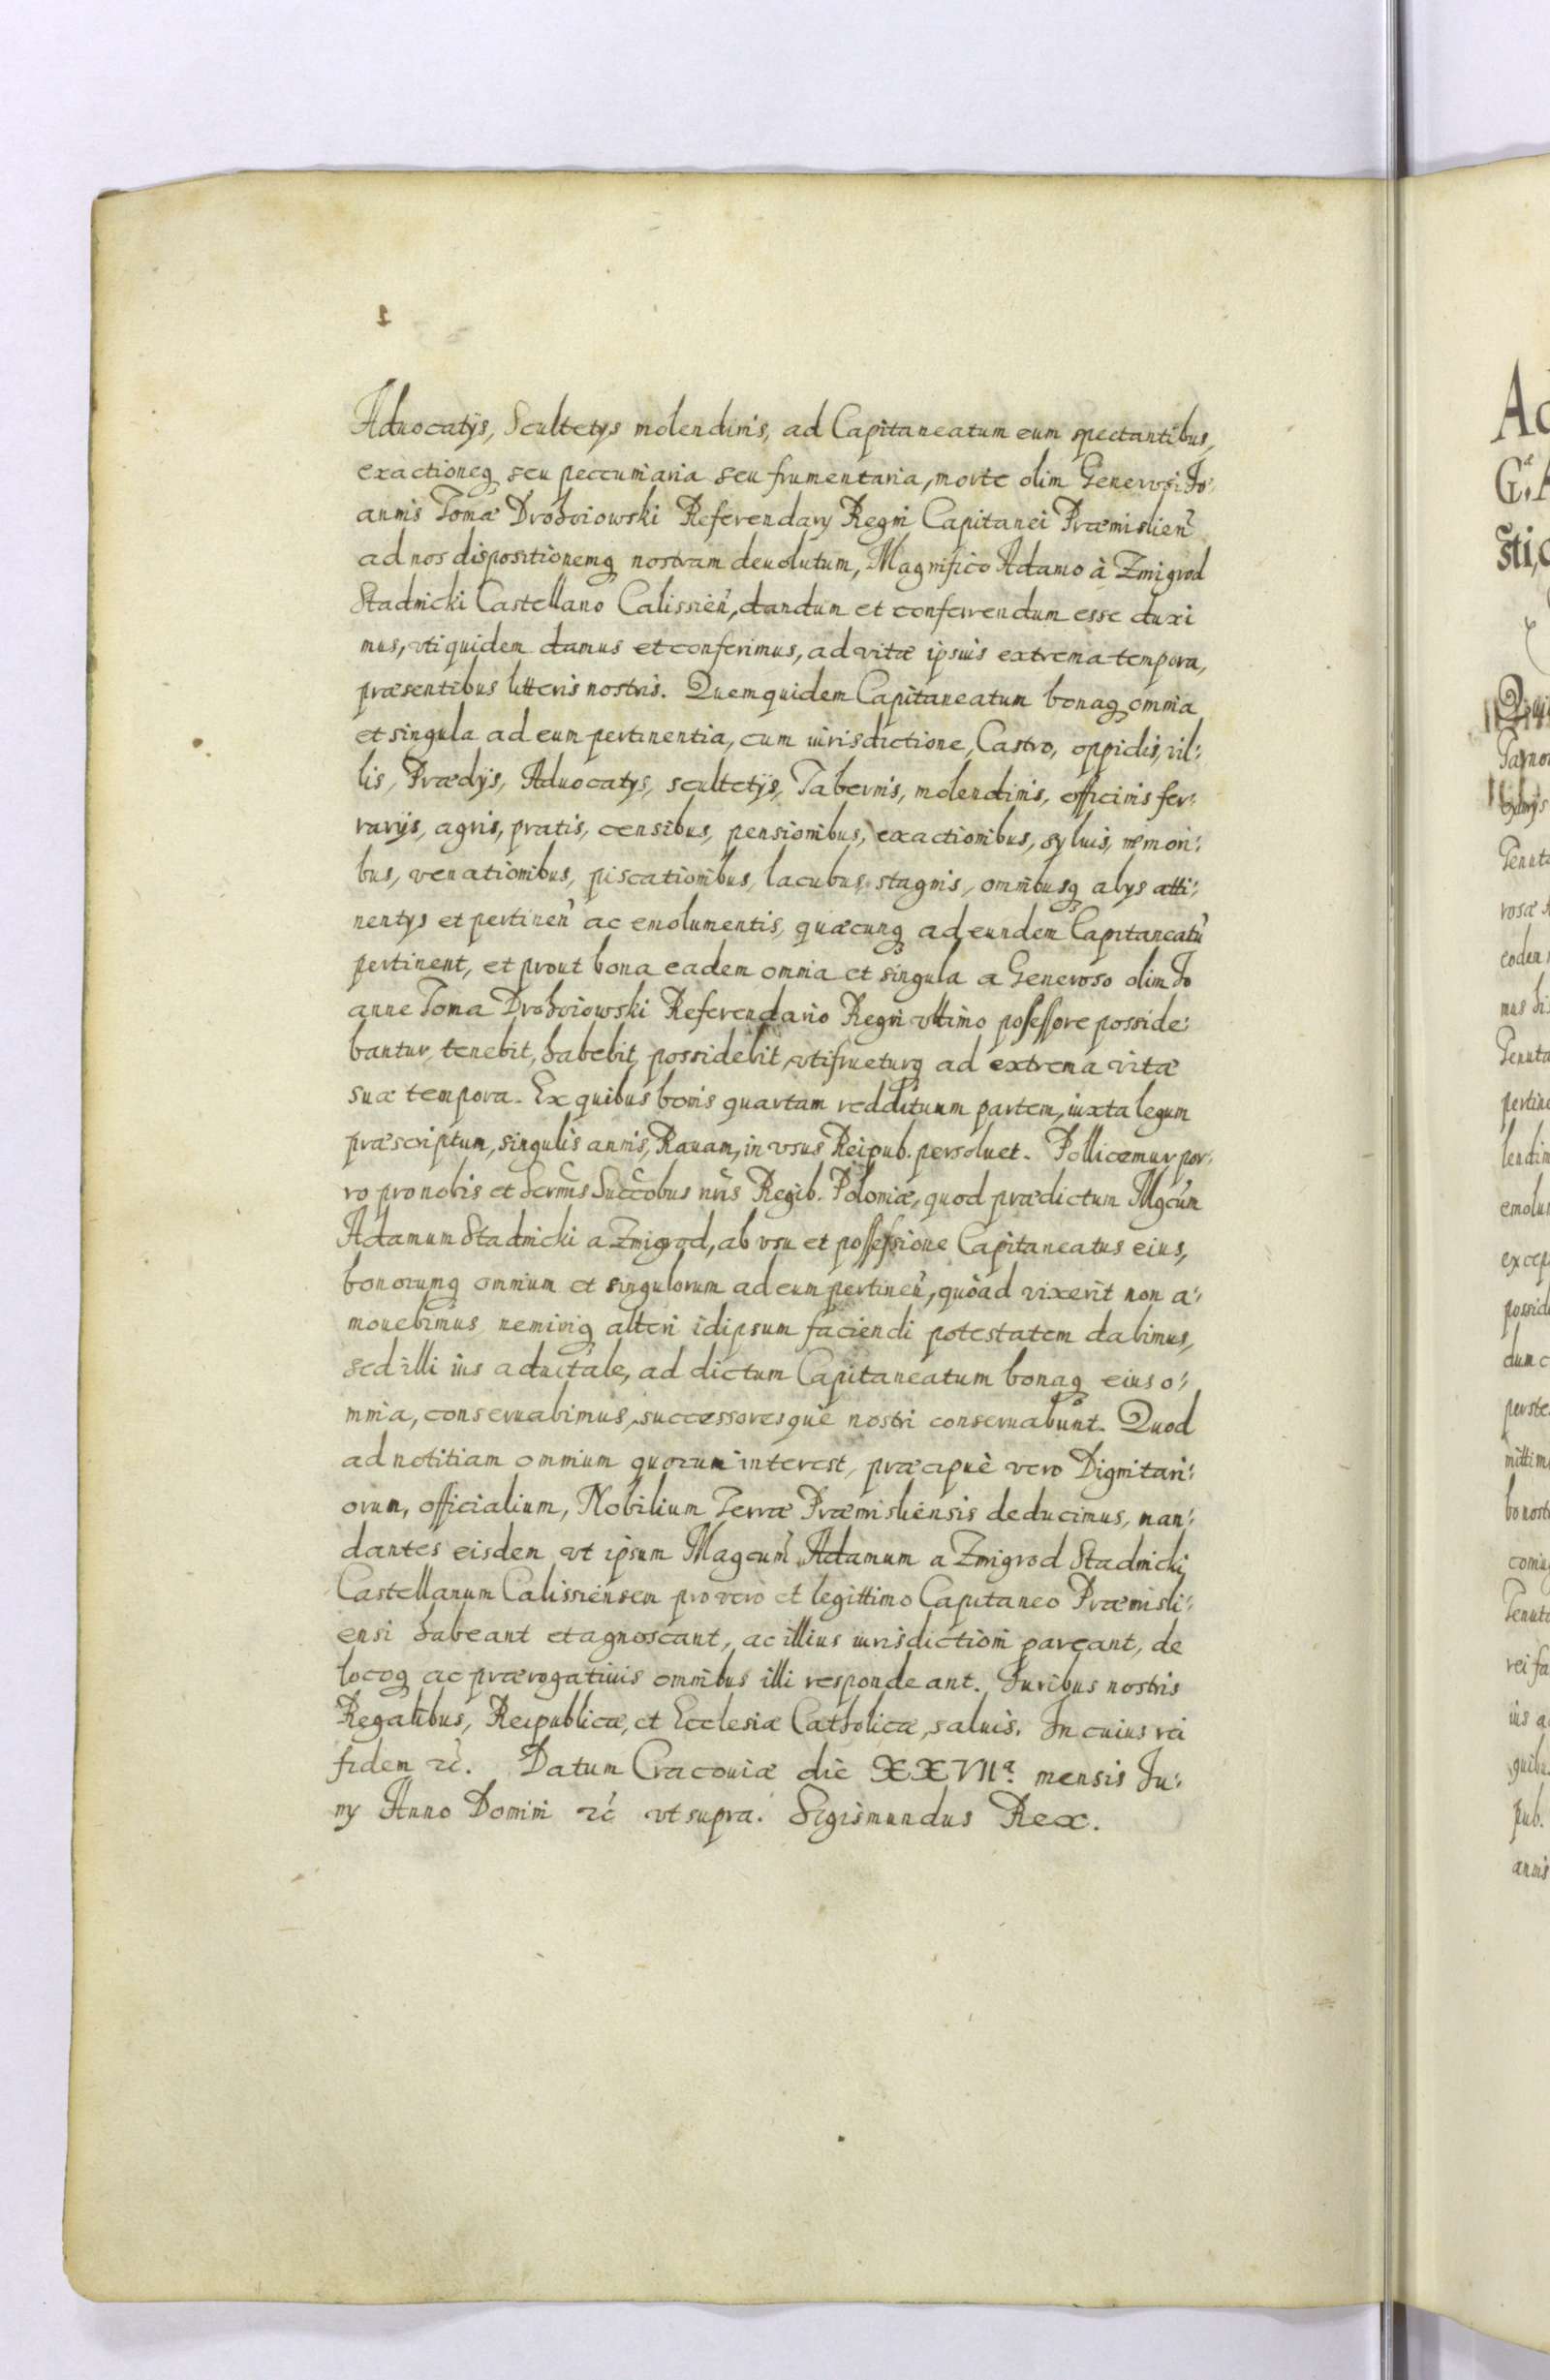 1
Aduocatijs, Scultetys molendinis, ad Capitaneatum eum spectantibus,
exactioneq; seu peccuniaria seu frumentaria, morte olim Generosi Jo:
annis Tomæ Drohoiowski Referendarij Regni Capitanei Præmislien̄
ad nos dispositionemq; nostram deuolutum, Magnifico Adamo à Zmigrod
Stadnicki Castellano Calissien̄, dandum et conferrendum esse duxi
mus, vti quidem damus et conferimus, ad vitæ ipsius extrema tempora,
præsentibus litteris nostris. Quemquidem Capitaneatum bonaq; omnia
et singula ad eum pertinentia, cum iurisdictione, Castro, oppidis, vil:
lis, Prædijs, Aduocatys, scultetijs, Tabernis, molendinis, officinis fer:
rarijs, agris, pratis, censibus, pensionibus, exactionibus, syluis, nemori:
bus, venationibus, piscationibus, lacubus, stagnis, omnibusq; alys atti:
nentys et pertinen̄ ac emolumentis, quæcunq; ad eundem Capitaneatū
pertinent, et prout bona eadem omnia et singula a Generoso olim Jo
anne Toma Drohoiowski Referendario Regni vltimo possessore posside:
bantur, tenebit, habebit, possidebit, vtifrueturq; ad extrema vitæ
suæ tempora. Ex quibus bonis quartam reddituum partem, iuxta legum
præscriptum, singulis annis, Rauam, in vsus Reipub. persoluet. Pollicemur por:
ro pro nobis et Sermis Succobus nris Regib. Poloniæ, quod prædictum Mgcūm
Adamum Stadnicki a Zmigrod, ab vsu et possessione Capitaneatus eius,
bonorumq; omnium et singulorum ad eum pertinen̄, quòad vixerit non a:
mouebimus neminiq; alteri idipsum faciendi potestatem dabimus,
sed illi ius aduitale, ad dictum Capitaneatum bonaq; eius o:
mnia, conseruabimus, successoresque nostri conseruabunt. Quod
ad notitiam omnium quorum interest, præcipuè vero Dignitari:
orum, officialium, Nobilium Terræ Præmisliensis deducimus, man:
dantes eisdem vt ipsum Magcum̄ Adamum a Zmigrod Stadnicki
Castellanum Calissiensem pro vero et legittimo Capitaneo Præmisli:
ensi habeant et agnoscant, ac illius iurisdictioni pareant, de
locoq; ac prærogatiuis omnibus illi respondeant. Juribus nostris
Regalibus, Reipublicæ, et Ecclesiæ Catholicæ, saluis. In cuius rei
fidem &c. Datum Cracouiæ die XXVIIa. mensis Ju:
ny Anno Domini &c vt supra. Sigismundus Rex.